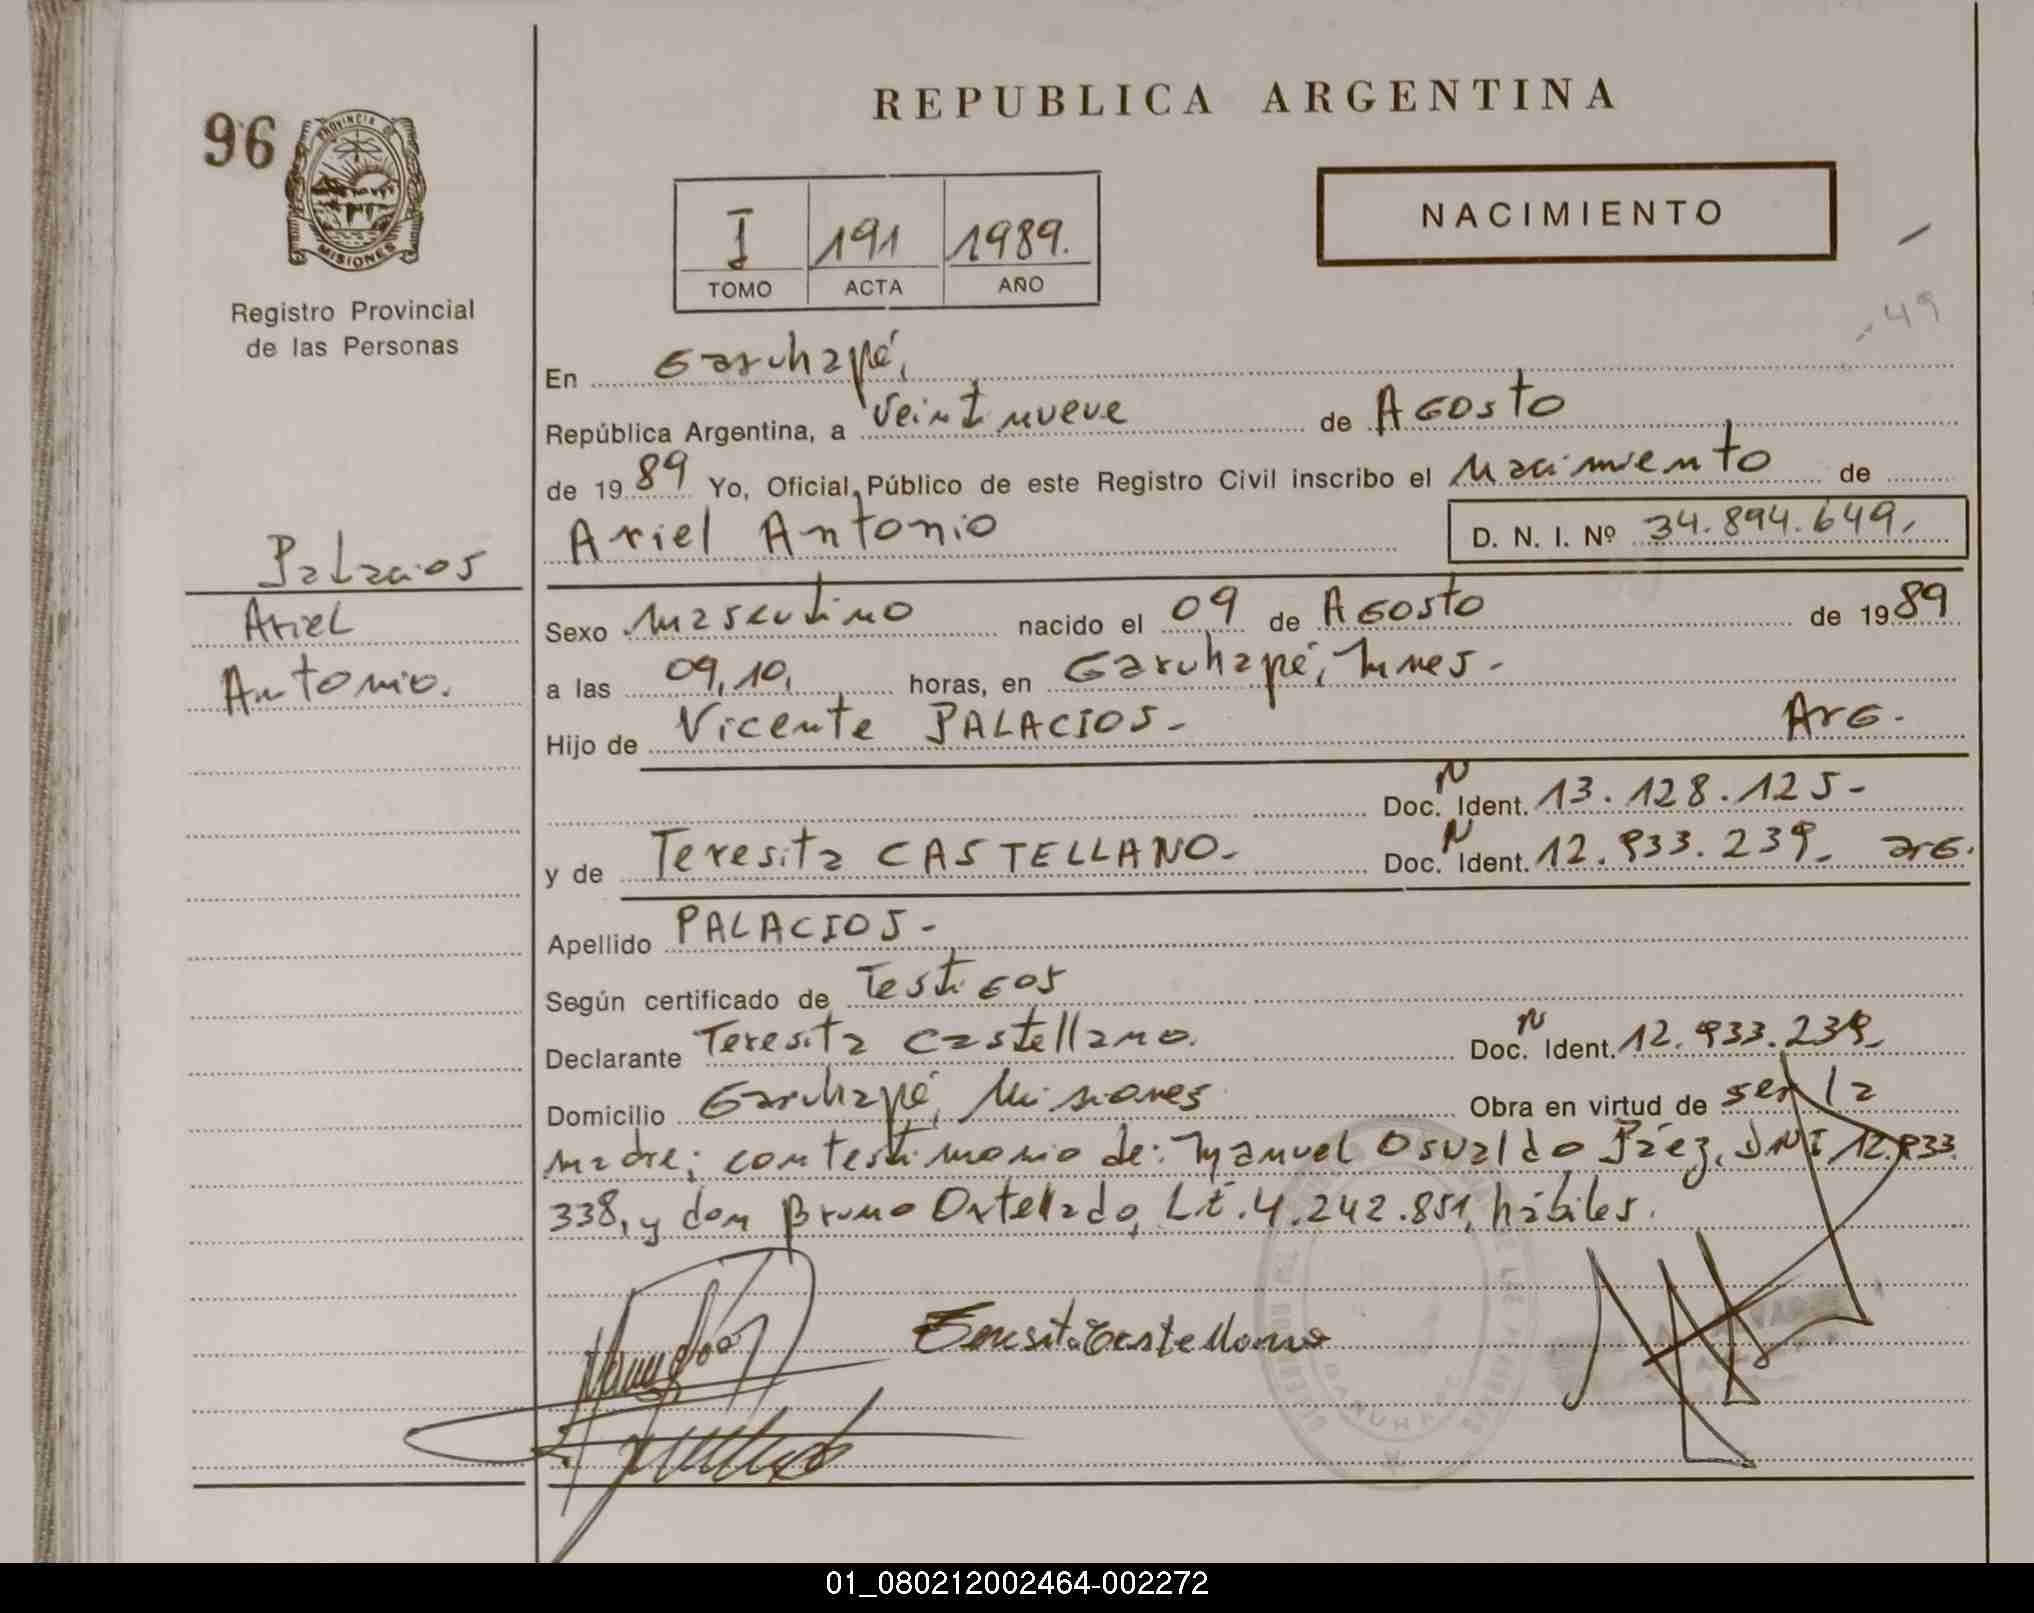 REPUBLICA ARGENTINA
96
PROVINCIA DE
MISIONES
Registro Provincial
de las Personas
NACIMIENTO
I 191 1989.
TOMO ACTA AÑO
49
En Garuhapé,
República Argentina, a Veintinueve de AGosto
de 1989 Yo, Oficial Público de este Registro Civil inscribo el Nacimiento de
Ariel Antonio D. N. I. Nº 34.894.649,
Palacios
Ariel
Antonio.
Sexo Masculino nacido el 09 de AGosto de 1989
a las 09,10, horas, en Garuhapé, Mnes.-
Hijo de Vicente PALACIOS.- ArG.
Doc. N Ident. 13.128.125-
y de Teresita CASTELLANO.- Doc. N Ident. 12.933.239.- arG.
Apellido PALACIOS.-
Según certificado de TestiGos
Declarante Teresita Castellano. Doc. N Ident. 12.933.239.-
Domicilio Garuhapé, Misiones Obra en virtud de ser la
madre; con testimonio de: Manuel Osvaldo Páez, DNI 12.933.
338, y don Bruno Ortellado, Lt. 4.242.851, hábiles.
Teresita Castellano
GARUHAPE
01_080212002464-002272